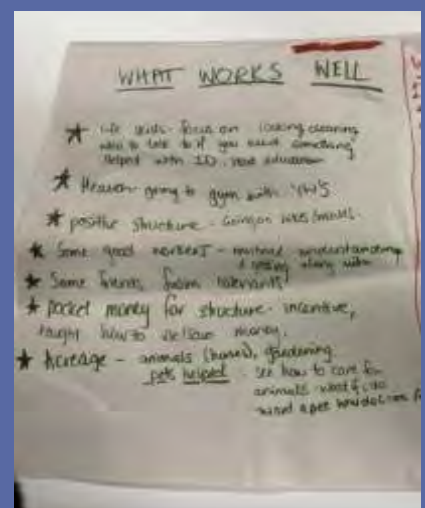 WHAT WORKS WELL
★ Life skills - focus on cooking cleaning
who to talk to if you need something
helped with ID
★ going to gym with
★ positive structure
★ Some good workers - mutual understanding
& getting along with
★ Some friends from
★ pocket money for structure - incentive,
taught how to save money.
★ Acreage - animals (horses), gardening.
pets helped - see how to care for
animals
want a pet